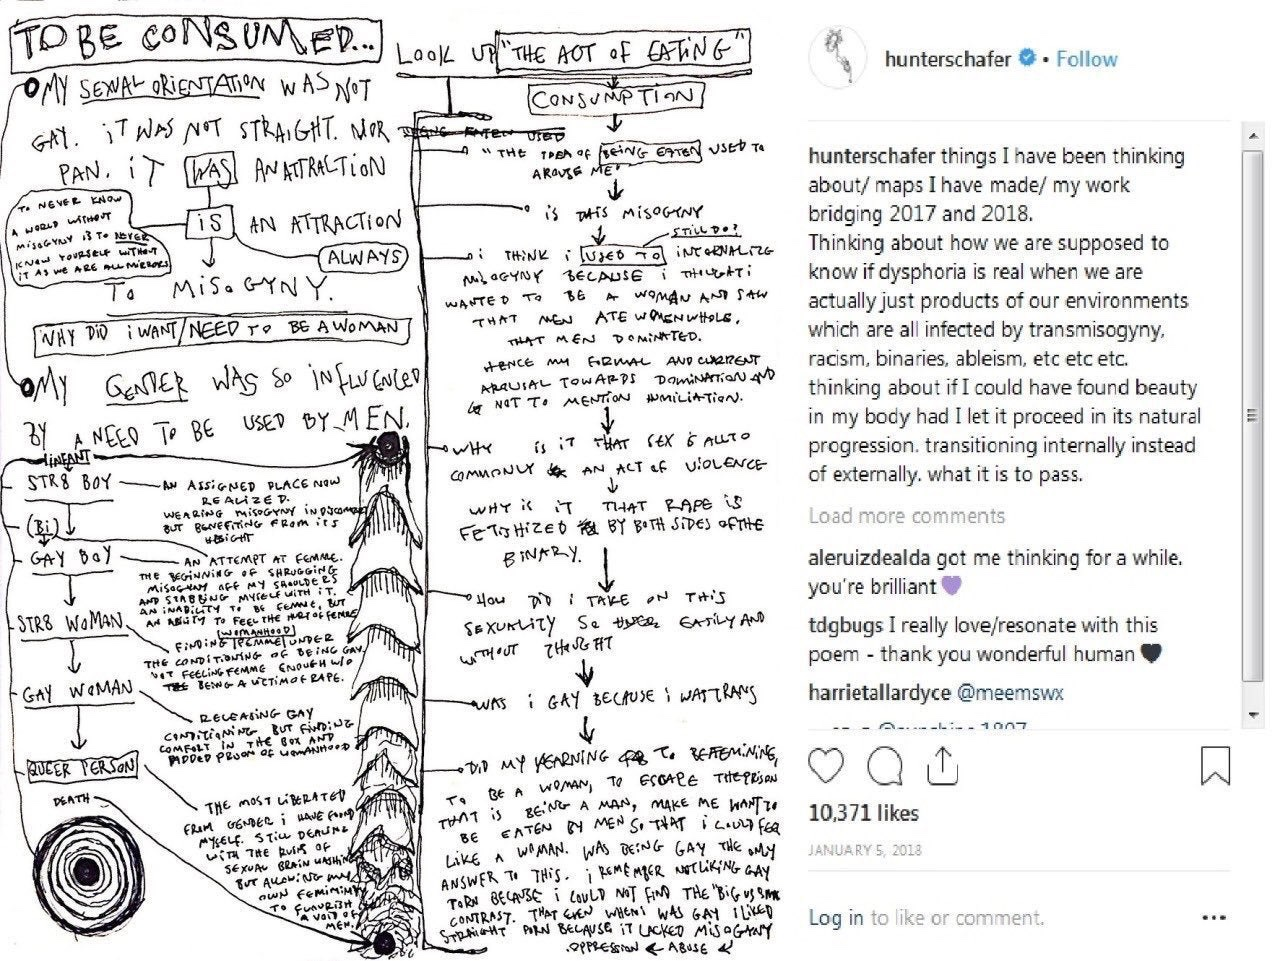 TO BE CONSUMED...
MY SEXUAL ORIENTATION WAS NOT
GAY. iT WAS NOT STRAIGHT. NOR
PAN. iT WAS AN ATTRACTION
TO NEVER KNOW
A WORLD WITHOUT
MISOGYNY IS TO NEVER
KNOW YOURSELF WITHOUT
IT AS WE ARE ALL MIRRORS
iS AN ATTRACTION
ALWAYS
TO MISOGYNY.
WHY DID i WANT/NEED TO BE A WOMAN
MY GENDER WAS SO INFLUENCED
BY A NEED TO BE USED BY MEN.
INFANT
STR8 BOY
AN ASSIGNED PLACE NOW
REALIZED.
WEARING MISOGYNY IN DISCOMFORT
BUT BENEFITING FROM ITS
(Bi)
GAY BOY
AN ATTEMPT AT FEMME.
THE BEGINNING OF SHRUGGING
MISOGYNY OFF MY SHOULDERS
AND STABBING MYSELF WITH IT.
AN INABILITY TO BE FEMME, BUT
AN ABILITY TO FEEL THE HURT OF FEMME
STR8 WOMAN
WOMANHOOD
FINDING FEMME UNDER
THE CONDITIONING OF BEING GAY
NOT FEELING FEMME ENOUGH W/O
BEING A VICTIM OF RAPE.
GAY WOMAN
RELEASING GAY
CONDITIONING BUT FINDING
COMFORT IN THE BOX AND
ADDED PROOF OF WOMANHOOD
QUEER PERSON
DEATH
THE MOST LIBERATED
FROM GENDER i HAVE FOUND
MYSELF. STILL DEALING
WITH THE RUINS OF
SEXUAL BRAIN WASHING
BUT ALLOWING MY
OWN FEMININITY
TO FLOURISH
A VOID OF
MEN.
LOOK UP "THE ACT OF EATING"
CONSUMPTION
"THE IDEA OF BEING EATEN USED TO
AROUSE ME"
IS THIS MISOGYNY
STILL DO?
i THINK i USED TO INTERNALIZE
MISOGYNY BECAUSE i THOUGHT i
WANTED TO BE A WOMAN AND SAW
THAT MEN ATE WOMEN WHOLE.
THAT MEN DOMINATED.
HENCE MY FORMAL AND CURRENT
AROUSAL TOWARDS DOMINATION AND
NOT TO MENTION HUMILIATION.
WHY IS iT THAT SEX IS ALL TO
COMMONLY AN ACT OF VIOLENCE
WHY IS IT THAT RAPE IS
FETISHIZED BY BOTH SIDES OF THE
BINARY.
HOW DID i TAKE ON THIS
SEXUALITY SO EASILY AND
WITHOUT THOUGHT
WAS i GAY BECAUSE i WAS TRANS
DID MY YEARNING TO BE FEMININE,
TO BE A WOMAN, TO ESCAPE THE PRISON
THAT IS BEING A MAN, MAKE ME WANT TO
BE EATEN BY MEN SO THAT i COULD FEEL
LIKE A WOMAN. WAS BEING GAY THE ONLY
ANSWER TO THIS. i REMEMBER NOT LIKING GAY
PORN BECAUSE i COULD NOT FIND THE "BIG VS SMALL
CONTRAST. THAT EVEN WHEN i WAS GAY i LIKED
STRAIGHT PORN BECAUSE IT LACKED MISOGYNY
OPPRESSION ABUSE
hunterschafer • Follow
hunterschafer things I have been thinking
about/ maps I have made/ my work
bridging 2017 and 2018.
Thinking about how we are supposed to
know if dysphoria is real when we are
actually just products of our environments
which are all infected by transmisogyny,
racism, binaries, ableism, etc etc etc.
thinking about if I could have found beauty
in my body had I let it proceed in its natural
progression. transitioning internally instead
of externally. what it is to pass.
Load more comments
aleruizdealda got me thinking for a while.
you're brilliant💜
tdgbugs I really love/resonate with this
poem - thank you wonderful human🖤
harrietallardyce @meemswx
10,371 likes
JANUARY 5, 2018
Log in to like or comment.